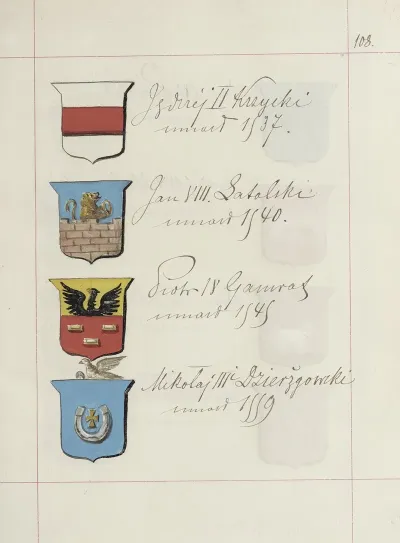 103.
Jędrzéj II Krzycki
umarł 1537.
Jan VIII. Latalski
umarł 1540.
Piotr IV Gamrat
umarł 1545
Mikołaj III Dzierżgowski
umarł 1559